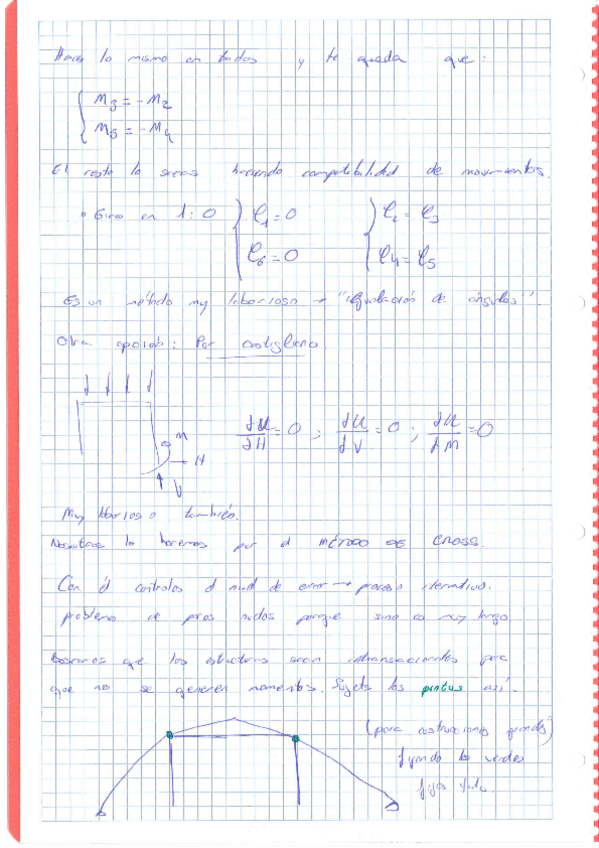 Haces lo mismo en todos y te queda que:
M3 = -M2
M5 = -M4
El resto lo sacas haciendo compatibilidad de movimientos.
• Giro en 1: 0 φ1 = 0 φ2 = φ3
φ6 = 0 φ4 = φ5
Es un método muy laborioso → "igualación de ángulos".
Otra opción: Por castigliano
∂U/∂H = 0 ; ∂U/∂V = 0 ; ∂U/∂M = 0
M
H
V
Muy laborioso también.
Nosotros lo haremos por el MÉTODO DE CROSS.
Con él controlas el nivel de error → proceso iterativo.
problema de pocos nudos porque sino es muy largo
Buscaremos que las estructuras sean intraslacionales para
que no se generen momentos. Sujeto los puntos así.
(para construcciones grandes)
fijando los verdes
fijas todo.